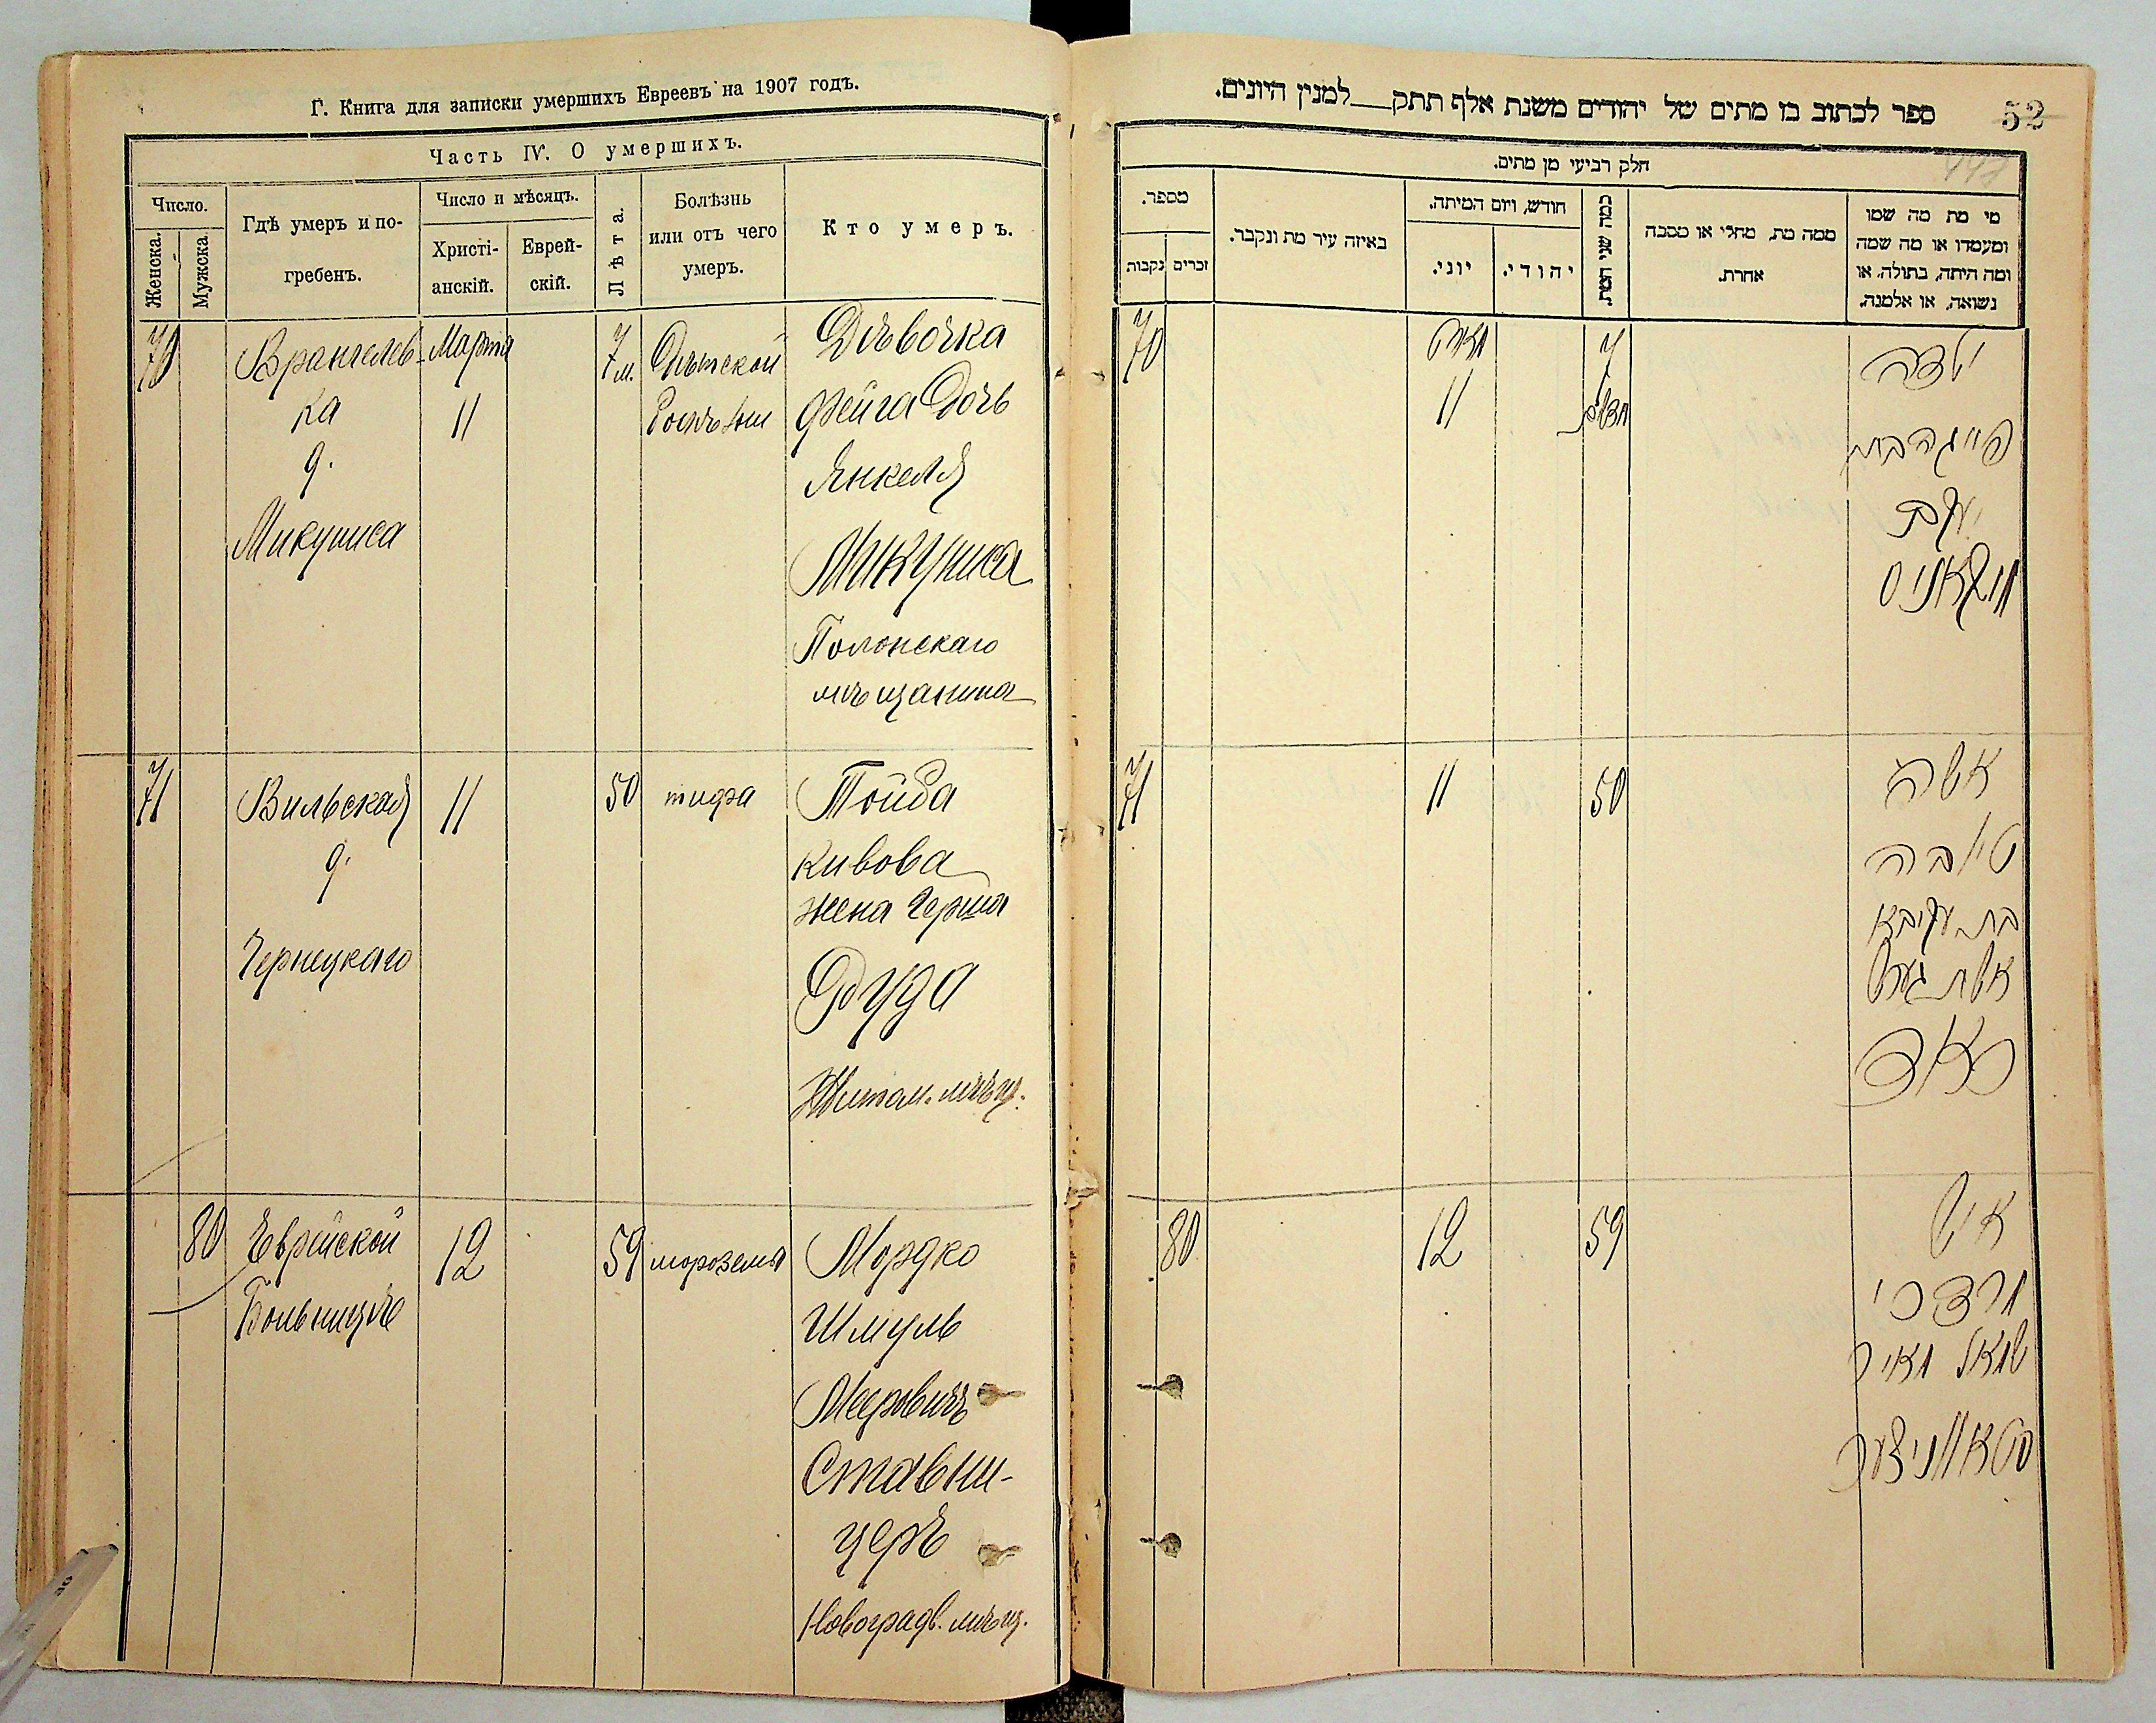 Г. Книга для записки умершихъ Евреевъ на 1907 годъ.
Часть IV. О умершихъ.
Число.
Женска.
Мужска.
Гдѣ умеръ и по-
гребенъ.
Число и мѣсяцъ.
Христі-
анскій.
Еврей-
скій.
Лѣта.
Болѣзнь
или отъ чего
умеръ.
Кто умеръ.
70
Врангелев-
ка
д.
Микуниса
Марта
11
7 м.
Дѣтской
Дѣвочка
Фейга Дочь
Янкеля
Микуниса
Полонскаго
мѣщанина
71
Вильская
д.
Чернецкаго
11
50
тифа
Тойба
Кивова
жена Герша
Фуда
Житом. мѣщ.
80
Еврейской
Больницѣ
12
59
Мордко
Шмуль
Мееровичъ
Ставни-
церъ
Новоградв. мѣщ.
52
ספר לכתוב בו מתים של יהודים משנת אלף תתק למנין היונים.
חלק רביעי מן מתים.
מספר.
נקבות
זכרים
באיזה עיר מת ונקבר.
חודש, ויום המיתה.
יוני.
יהודי.
כמה שני המת.
ממה מת, מחלי או מסבה
אחרת.
מי מת מה שמו
ומעמדו או מה שמה
ומה היתה, בתולה, או
נשואה, או אלמנה.
70
מארט
11
7
חדשים
ילדה
פייגה בת
יעקב
מיקאניס
71
11
50
אשה
טויבה
בת עקיבא
אשת גערש
80
12
59
איש
מרדכי
שמואל מאיר
סטאווניצער